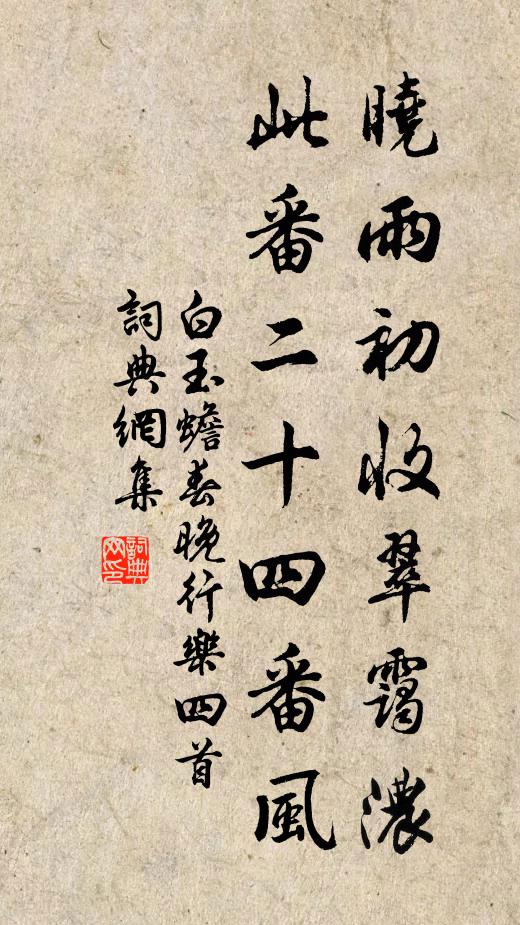 曉雨初收翠靄濃
此番二十四番風
白玉蟾春晚行樂四首
詞典網集
詞典网印